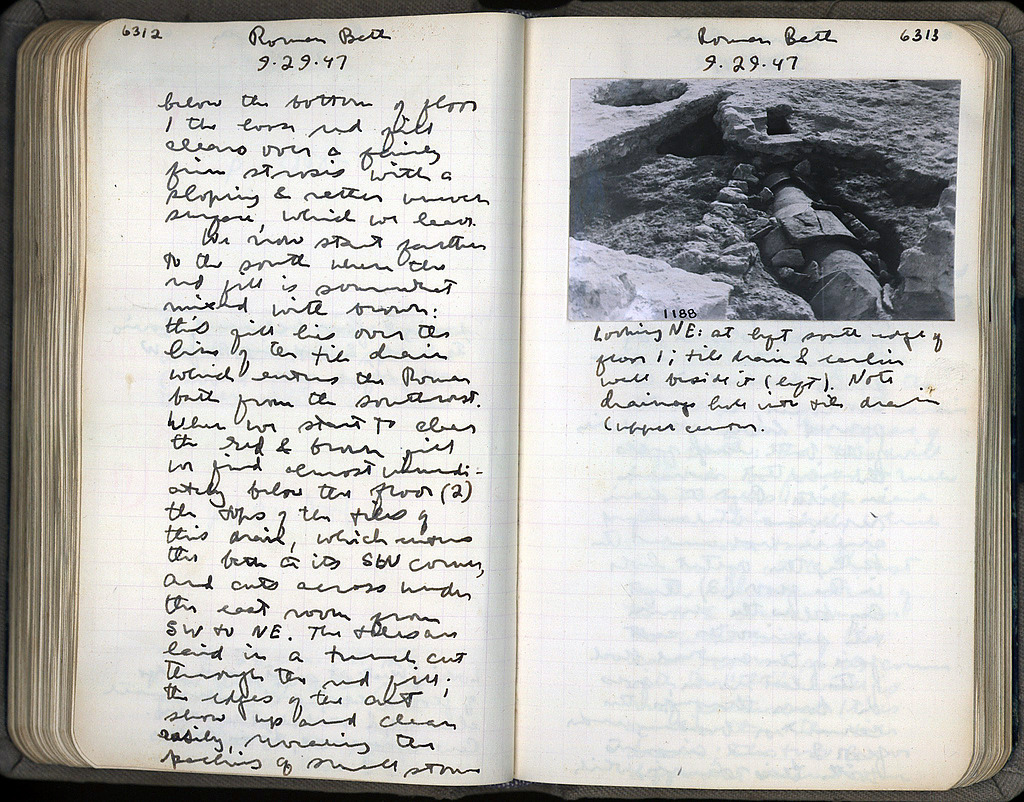 6312
Roman Bath
9.29.47
below the bottom of floor
1 the loose red fill
cleans over a fairly
firm strosis with a
sloping & rather uneven
surface, which we leave.
We now start farther
to the south where the
red fill is somewhat
mixed with brown:
this fill lies over the
line of the tile drain
which enters the Roman
bath from the southwest.
When we start to clear
the red & brown fill
we find almost immedi-
ately below the floor (2)
the tops of the tiles of
this drain, which enters
the bath at its SW corner,
and cuts across under
the east room from
SW to NE. The tiles are
laid in a trench cut
through the red fill;
the edges of the cut
show up and clean
easily, revealing the
packing of small stones
6313
Roman Bath
9.29.47
1188
Looking NE: at left south edge of
floor 1; tile drain & earlier
wall beside it (left). Note
drainage hole into tile drain
(upper center).